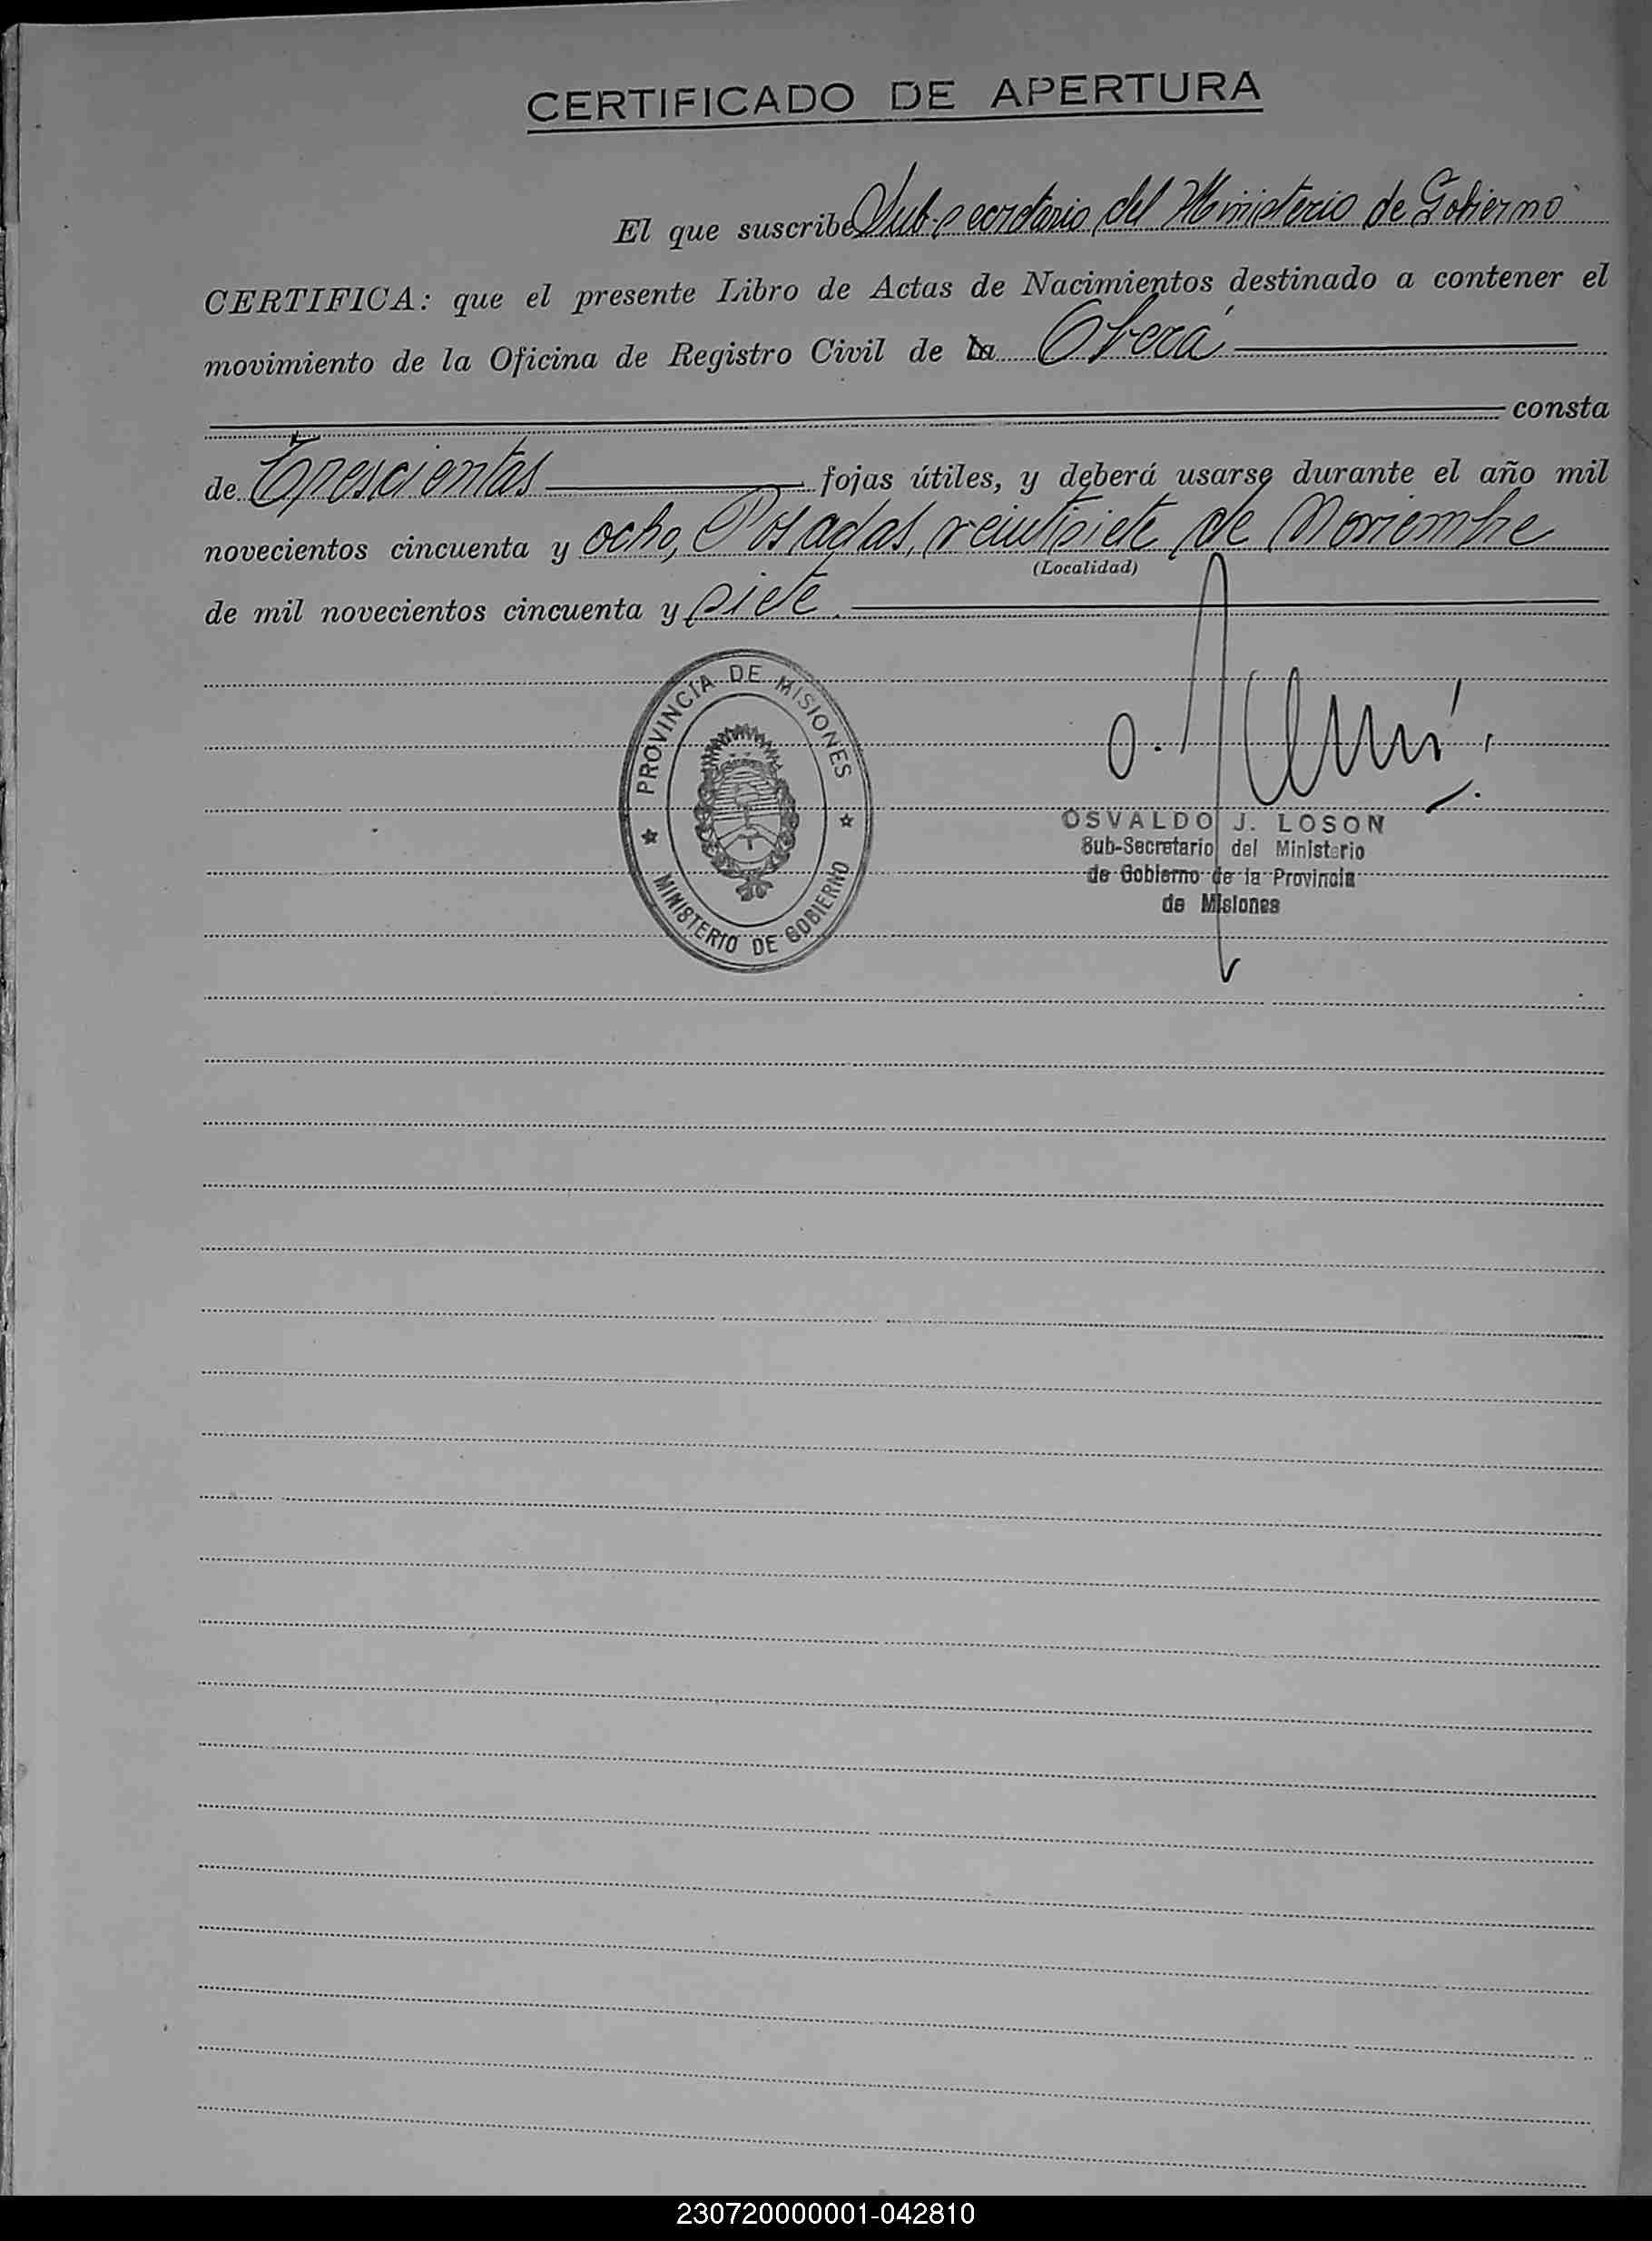 CERTIFICADO DE APERTURA
El que suscribe Sub-secretario del Ministerio de Gobierno
CERTIFICA: que el presente Libro de Actas de Nacimientos destinado a contener el
movimiento de la Oficina de Registro Civil de la Oberá
consta
de Trescientas fojas útiles, y deberá usarse durante el año mil
novecientos cincuenta y ocho, Posadas, veintisiete de Noviembre
(Localidad)
de mil novecientos cincuenta y siete.
PROVINCIA DE MISIONES
MINISTERIO DE GOBIERNO
OSVALDO J. LOSON
Sub-Secretario del Ministerio
de Gobierno de la Provincia
de Misiones
230720000001-042810